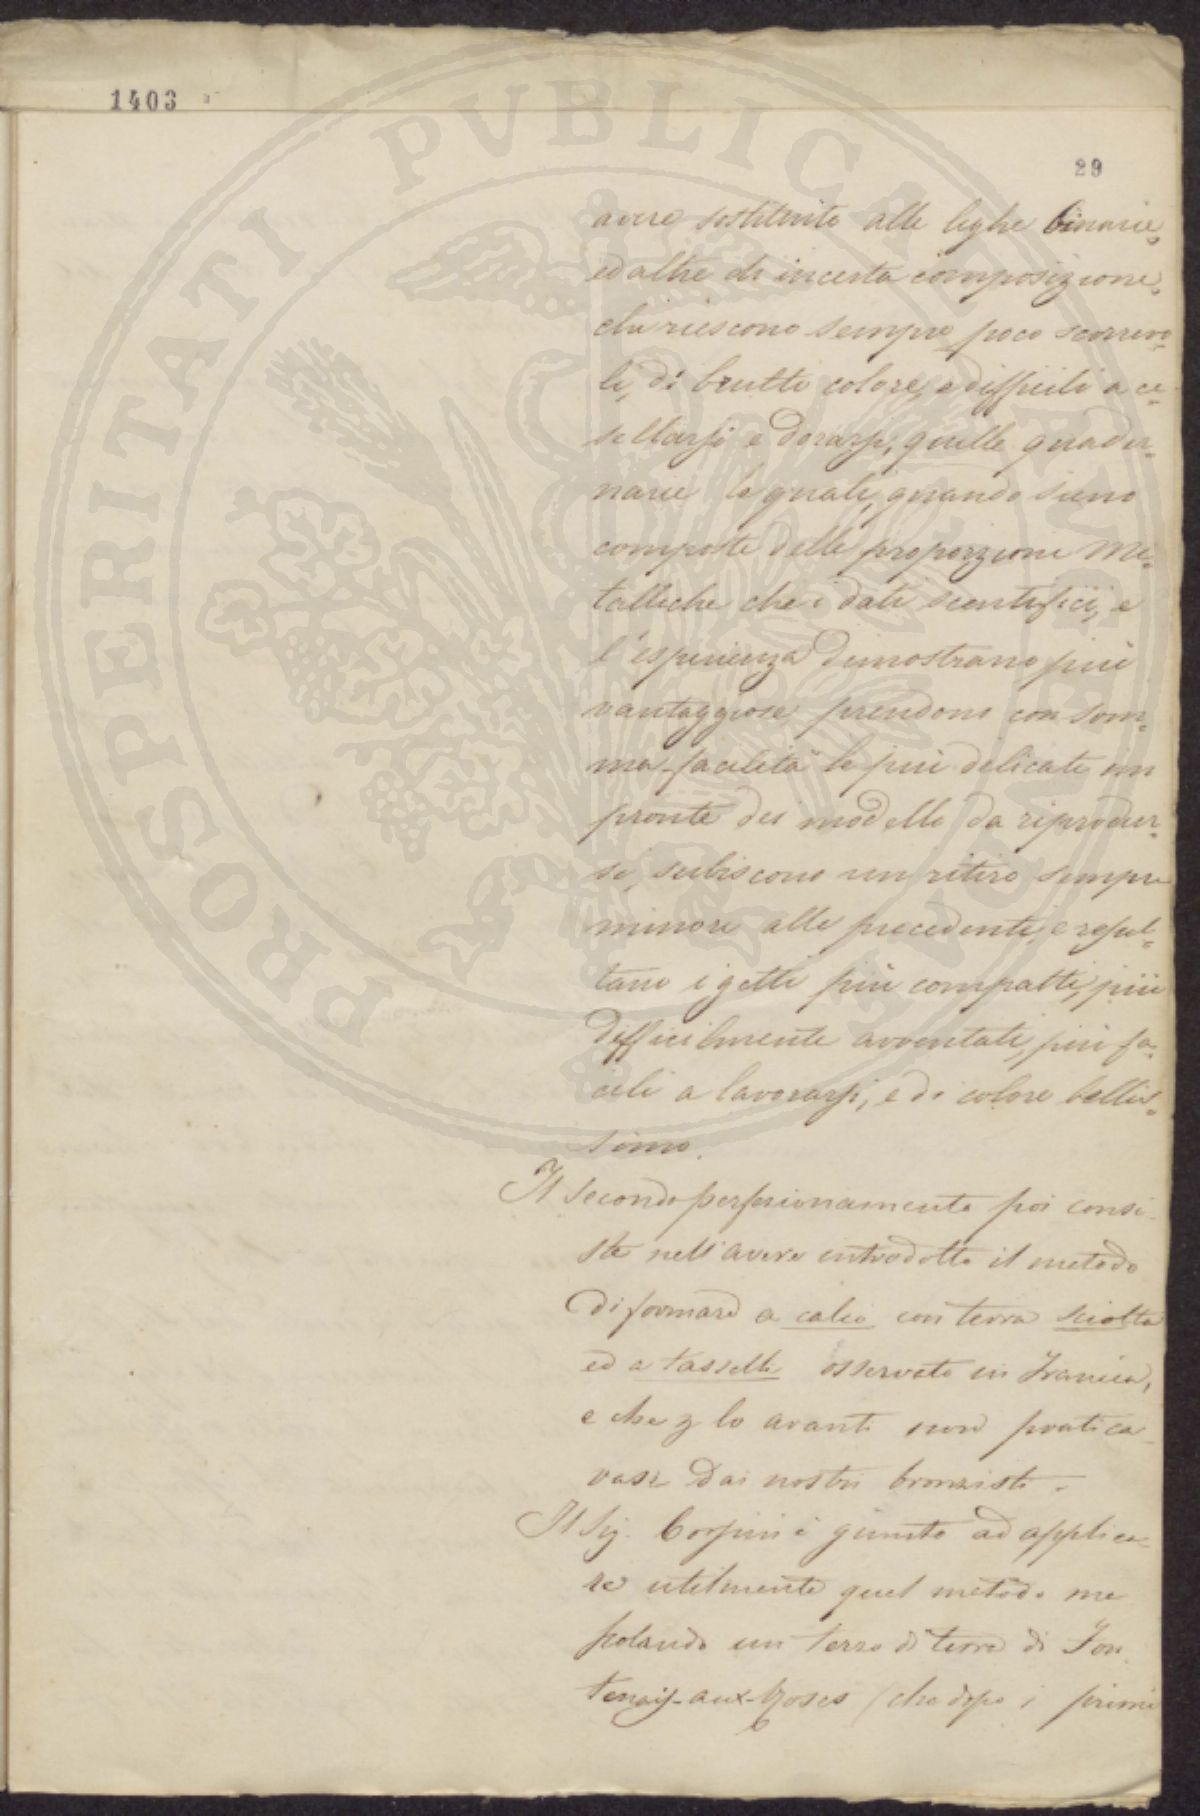 1403
29
PROSPERITATI PUBLICAE AUGENDAE
avere sostituito alle leghe binarie,
ed altre di incerta composizione,
che riescono sempre poco scorrevo-
li, di brutto colore, e difficili a ce-
sellarsi e dorarsi, quelle quader-
narie le quali, quando sieno
composte delle proporzioni me-
talliche che i dati scientifici, e
l'esperienza dimostrano più
vantaggiose, prendono con som-
ma facilità le più delicate im
pronte dei modelli da riprodur-
si, subiscono un ritiro sempre
minore alle precedenti, e resul-
tano i getti più compatti, più
difficilmente avventati, più fa-
cili a lavorarsi, e di colore bellis-
simo.
Il secondo perfezionamento poi consi-
ste nell'avere introdotto il metodo
di formare a calcio con terra sciolta
ed a tasselli osservato in Francia,
e che p lo avanti non pratica-
vasi dai nostri bronzisti.
Il Sig. è giunto ad applica-
re utilmente quel metodo me
scolando un terzo di terra di Fon
tenay-aux-Roses (che dopo i primi